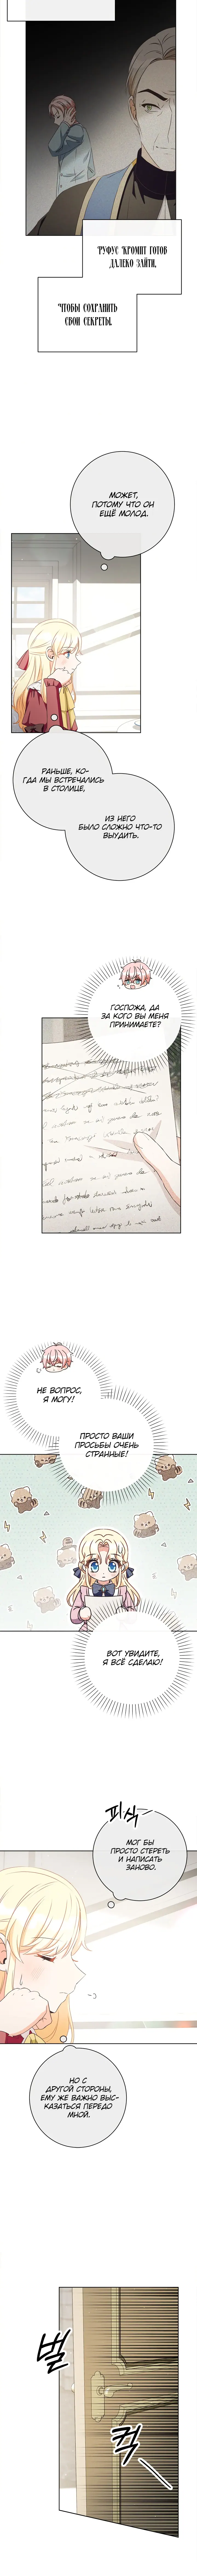 РУФУС КРОМПТ ГОТОВ
ДАЛЕКО ЗАЙТИ,
ЧТОБЫ СОХРАНИТЬ
СВОИ СЕКРЕТЫ.
МОЖЕТ,
ПОТОМУ ЧТО ОН
ЕЩЁ МОЛОД.
РАНЬШЕ, КО-
ГДА МЫ ВСТРЕЧАЛИСЬ
В СТОЛИЦЕ,
ИЗ НЕГО
БЫЛО СЛОЖНО ЧТО-ТО
ВЫУДИТЬ.
ГОСПОЖА, ДА
ЗА КОГО ВЫ МЕНЯ
ПРИНИМАЕТЕ?
НЕ ВОПРОС,
Я МОГУ!
ПРОСТО ВАШИ
ПРОСЬБЫ ОЧЕНЬ
СТРАННЫЕ!
ВОТ УВИДИТЕ,
Я ВСЁ СДЕЛАЮ!
피식
МОГ БЫ
ПРОСТО СТЕРЕТЬ
И НАПИСАТЬ
ЗАНОВО.
НО С
ДРУГОЙ СТОРОНЫ,
ЕМУ ЖЕ ВАЖНО ВЫС-
КАЗАТЬСЯ ПЕРЕДО
МНОЙ.
벌
컥